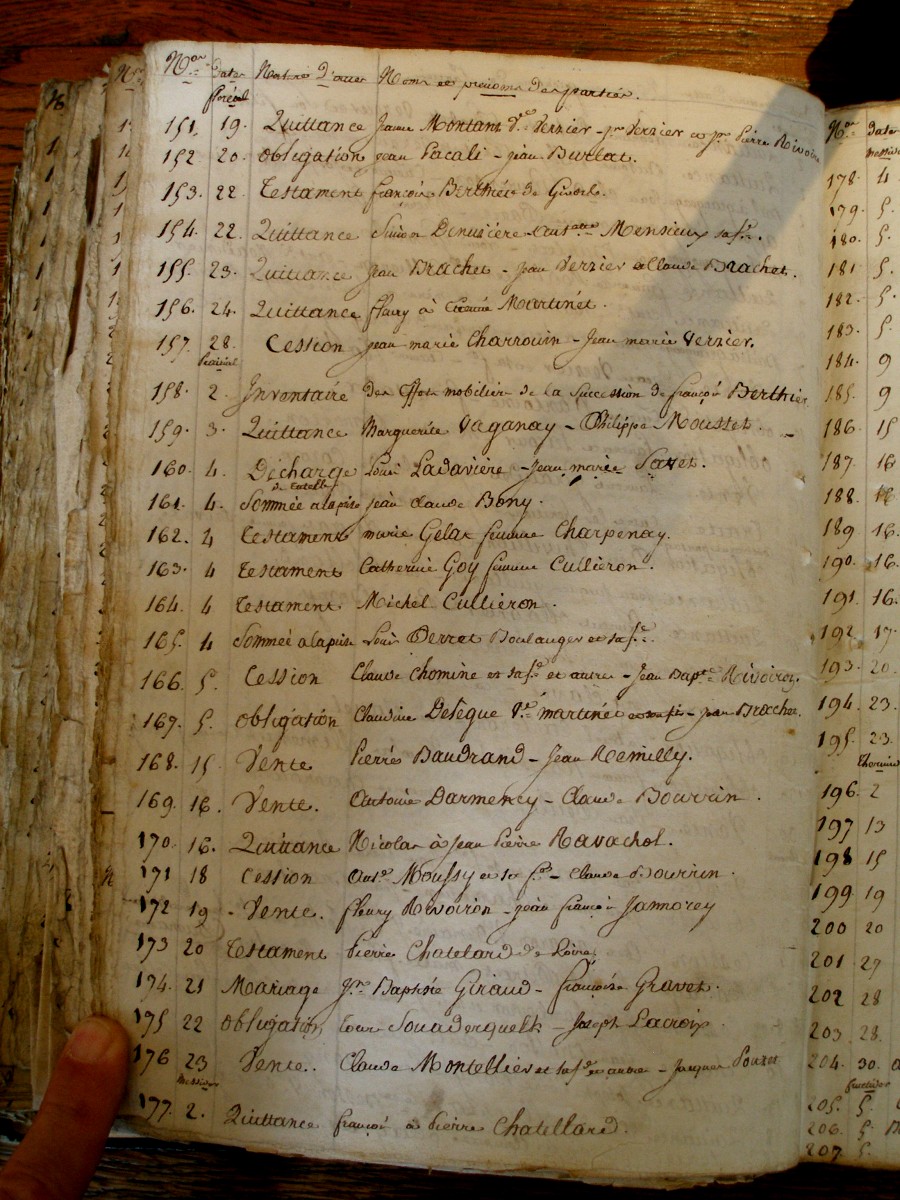 Nos Dates Natures D'actes Noms et prénoms Des parties.
floréal
151. 19. Quittance Jeanne Montant Ve Verzier - Verzier et Pierre Rivoire
152 20. Obligation Jean Pacali - Jean Burlat.
153. 22 Testament françois Berthier de Givors.
154. 22. Quittance Simon Denuzière Mensieux sa fe.
155. 23. Quittance Jean Brachet - Jean Verzier et Claude Brachet.
156. 24. Quittance fleury à Etienne Martinet.
157. 28. Cession Jean marie Charrouin - Jean marie Verzier.
Prairial
158. 2. Inventaire Des Effets mobilier de la Succession de françois Berthier
159. 3. Quittance Marguerite Vaganay - Philippe Mousset.
160. 4. Décharge Louis Ladavière - Jean marie Savet.
de tutelle
161. 4. Sommée a la pise jean claude Bony.
162. 4 Testament marie Gelas femme Charpenay.
163. 4 Testament Catherine Goy femme Cullieron.
164. 4 Testament Michel Cullieron.
165. 4 Sommée a la pise Louis Perret Boulanger et sa fe.
166. 5. Cession Claude Chomine et sa fe et autre - Jean Bapte Rivoiron.
167. 5. Obligation Claudine Desèque Ve martinet - Jean Brachet.
168. 15. Vente Pierre Baudrand - Jean Remilly.
169. 16. Vente. Antoine Darmency - Claude Bourrin.
170. 16. Quittance Nicolas à Jean Pierre Ravachol.
171 18 Cession Ante Moussy et sa fe - Claude Bourrin.
172 19 - Vente. fleury Rivoiron - Jean françois Jamorey
173 20 Testament Pierre Chatelard de Loire.
174. 21 Mariage Jean Baptiste Giraud - françoise Gravet.
175 22 Obligation - Joseph Lacroix.
176 23 Vente.. Claude Montellier et sa fe et autre - Jacques Pouzet
Messidor
177. 2. Quittance françois à Pierre Chatellard.
Nos Date
Messidor
178. 4
179. 5.
180. 5.
181 5.
182. 5.
183. 5.
184. 9
185. 9
186. 15
187. 16
188. 16
189 16.
190. 16.
191. 16.
192. 17.
193. 20.
194. 23.
195. 23.
Thermid
196. 2
197 13
198 15
199 19
200 20
201 27
202 28
203 28.
204. 30.
fructidor
205. 5.
206. 5.
207 5.